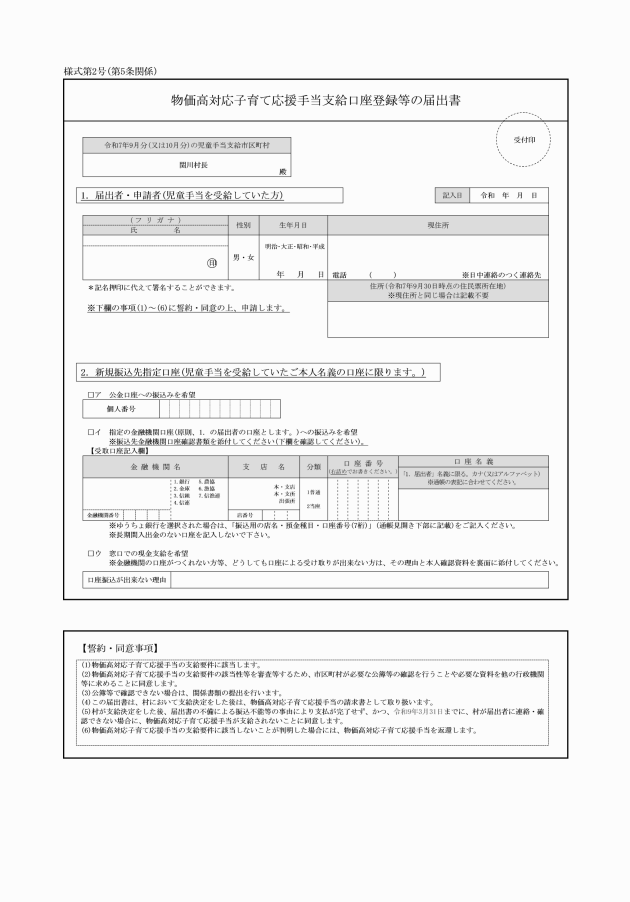 様式第2号(第5条関係)
物価高対応子育て応援手当支給口座登録等の届出書
受付印
令和7年9月分(又は10月分)の児童手当支給市区町村
関川村長
殿
1．届出者・申請者(児童手当を受給していた方)
記入日 令和 年 月 日
(フリガナ)
氏 名
性別
生年月日
現住所
㊞
男・女
明治・大正・昭和・平成
年 月 日
電話 ( ) ※日中連絡のつく連絡先
＊記名押印に代えて署名することができます。
住所(令和7年9月30日時点の住民票所在地)
※現住所と同じ場合は記載不要
※下欄の事項(1)～(6)に誓約・同意の上、申請します。
2．新規振込先指定口座(児童手当を受給していたご本人名義の口座に限ります。)
□ア 公金口座への振込みを希望
個人番号
□イ 指定の金融機関口座(原則、1．の届出者の口座とします。)への振込みを希望
※振込先金融機関口座確認書類を添付してください(下欄を確認してください)。
【受取口座記入欄】
金融機関名
支店名
分類
口座番号
(右詰めでお書きください。)
口座名義
「1．届出者」名義に限る。カナ(又はアルファベット)
※通帳の表記に合わせてください。
1.銀行 5.農協
2.金庫 6.漁協
3.信組 7.信漁連
4.信連
本・支店
本・支所
出張所
1普通
2当座
金融機関番号
店番号
※ゆうちょ銀行を選択された場合は、「振込用の店名・預金種目・口座番号(7桁)」(通帳見開き下部に記載)をご記入ください。
※長期間入出金のない口座を記入しないで下さい。
□ウ 窓口での現金支給を希望
※金融機関の口座がつくれない方等、どうしても口座による受け取りが出来ない方は、その理由と本人確認資料を裏面に添付してください。
口座振込が出来ない理由
【誓約・同意事項】
(1)物価高対応子育て応援手当の支給要件に該当します。
(2)物価高対応子育て応援手当の支給要件の該当性等を審査等するため、市区町村が必要な公簿等の確認を行うことや必要な資料を他の行政機関
等に求めることに同意します。
(3)公簿等で確認できない場合は、関係書類の提出を行います。
(4)この届出書は、村において支給決定をした後は、物価高対応子育て応援手当の請求書として取り扱います。
(5)村が支給決定をした後、届出書の不備による振込不能等の事由により支払が完了せず、かつ、令和9年3月31日までに、村が届出者に連絡・確
認できない場合に、物価高対応子育て応援手当が支給されないことに同意します。
(6)物価高対応子育て応援手当の支給要件に該当しないことが判明した場合には、物価高対応子育て応援手当を返還します。